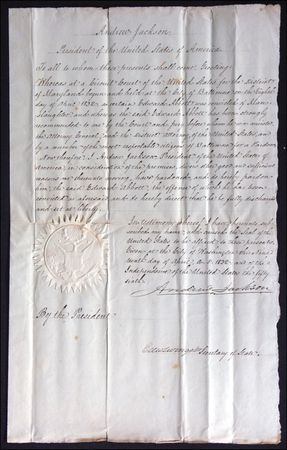 Andrew Jackson
President of the United States of America
To all to whom these presents shall come Greeting
Whereas at a Circuit Court of the United States for the District
of Maryland begun and held at the City of Baltimore on the Eighth
day of April 1832 a certain Edward Abbott was convicted of Man-
slaughter and whereas the said Edward Abbott has been strongly
recommended to me by the Court and
the Attorney General, and the District Attorney of the United States, and
by a number of the most respectable citizens of Baltimore for a Pardon
Now therefore I Andrew Jackson President of the United States of
America, in consideration of the premises and other good and sufficient
reasons me thereunto moving, have pardoned and do hereby pardon
him the said Edward Abbott, the offence of which he has been
convicted as aforesaid and do hereby direct that he be fully discharged
and set at liberty.
In testimony whereof I have hereunto sub-
scribed my name, and caused the Seal of the
United States to be affixed to these presents
Given at the City of Washington this
day of April, A.D. 1832 and of the
Independence of the United States the fifty
sixth.
Andrew Jackson
By the President
Edw. Livingston Secretary of State.